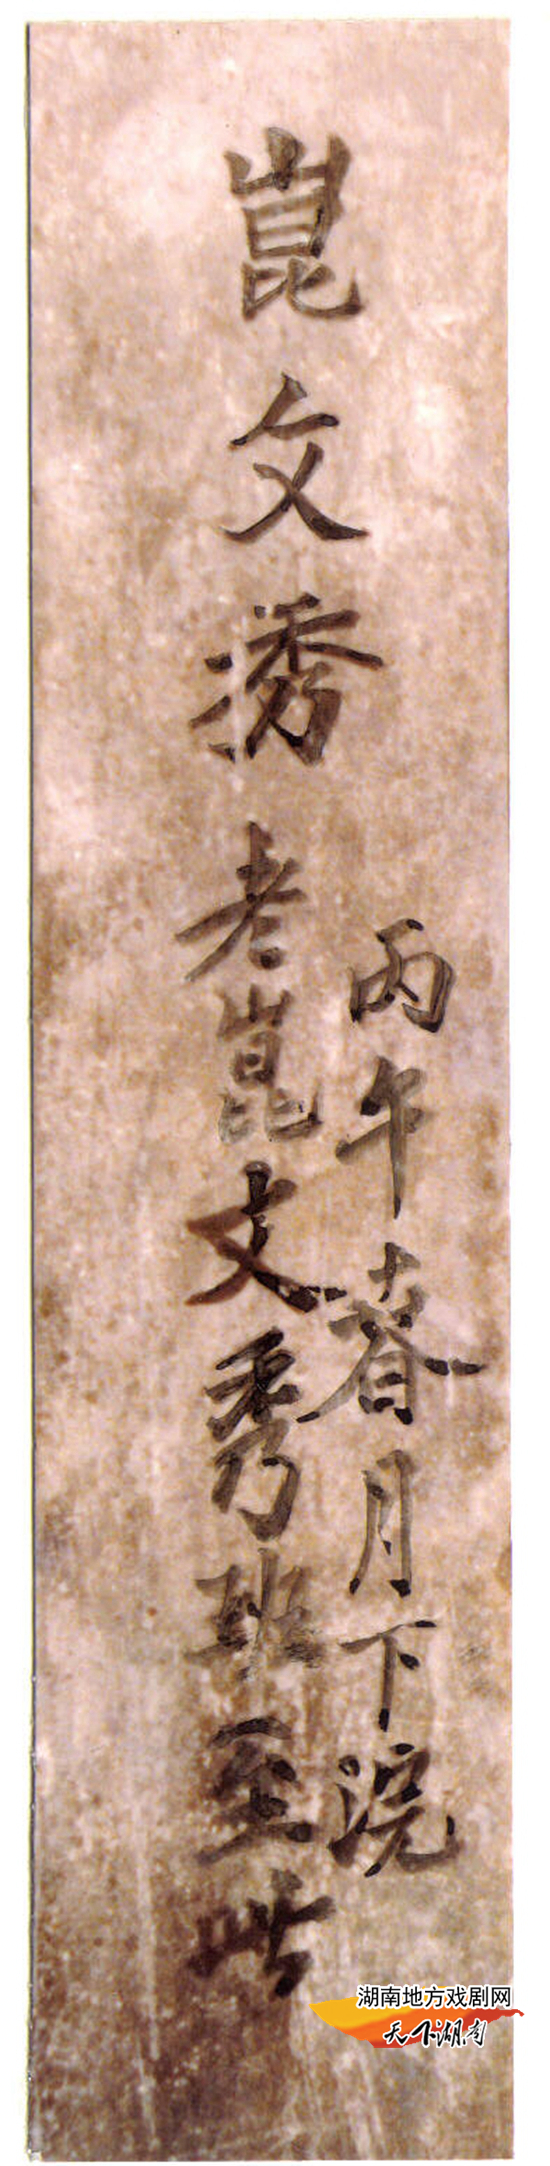 丙午春月下浣
崑文
老崑文秀班至此
湖南地方戏剧网
天下湖南